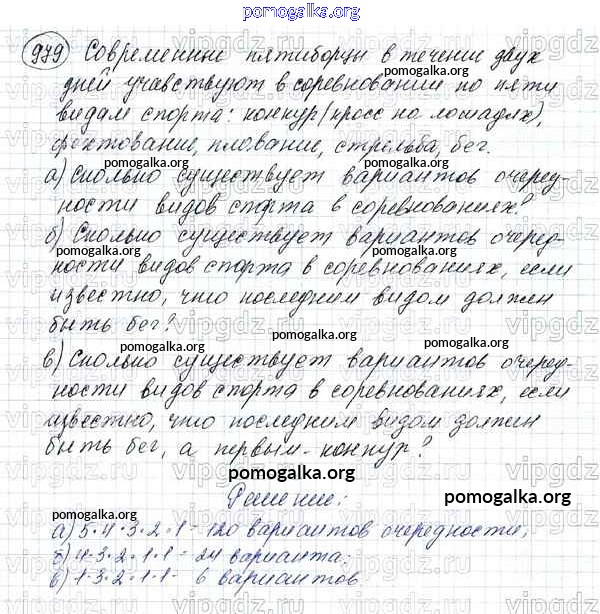 pomogalka.org
979 Современные пятиборцы в течение двух
дней учавствуют в соревновании по пяти
видам спорта: конкур (кросс на лошадях),
фехтование, плование, стрельба, бег.
а) Сколько существует вариантов очеред-
ности видов спорта в соревнованиях?
б) Сколько существует вариантов очеред-
ности видов спорта в соревнованиях, если
известно, что последним видом должен
быть бег?
в) Сколько существует вариантов очеред-
ности видов спорта в соревнованиях, если
известно, что последним видом должен
быть бег, а первым - конкур?
pomogalka.org
Решение:
pomogalka.org
а) 5·4·3·2·1 = 120 вариантов очередности;
б) 4·3·2·1·1 = 24 варианта;
в) 1·3·2·1·1 = 6 вариантов